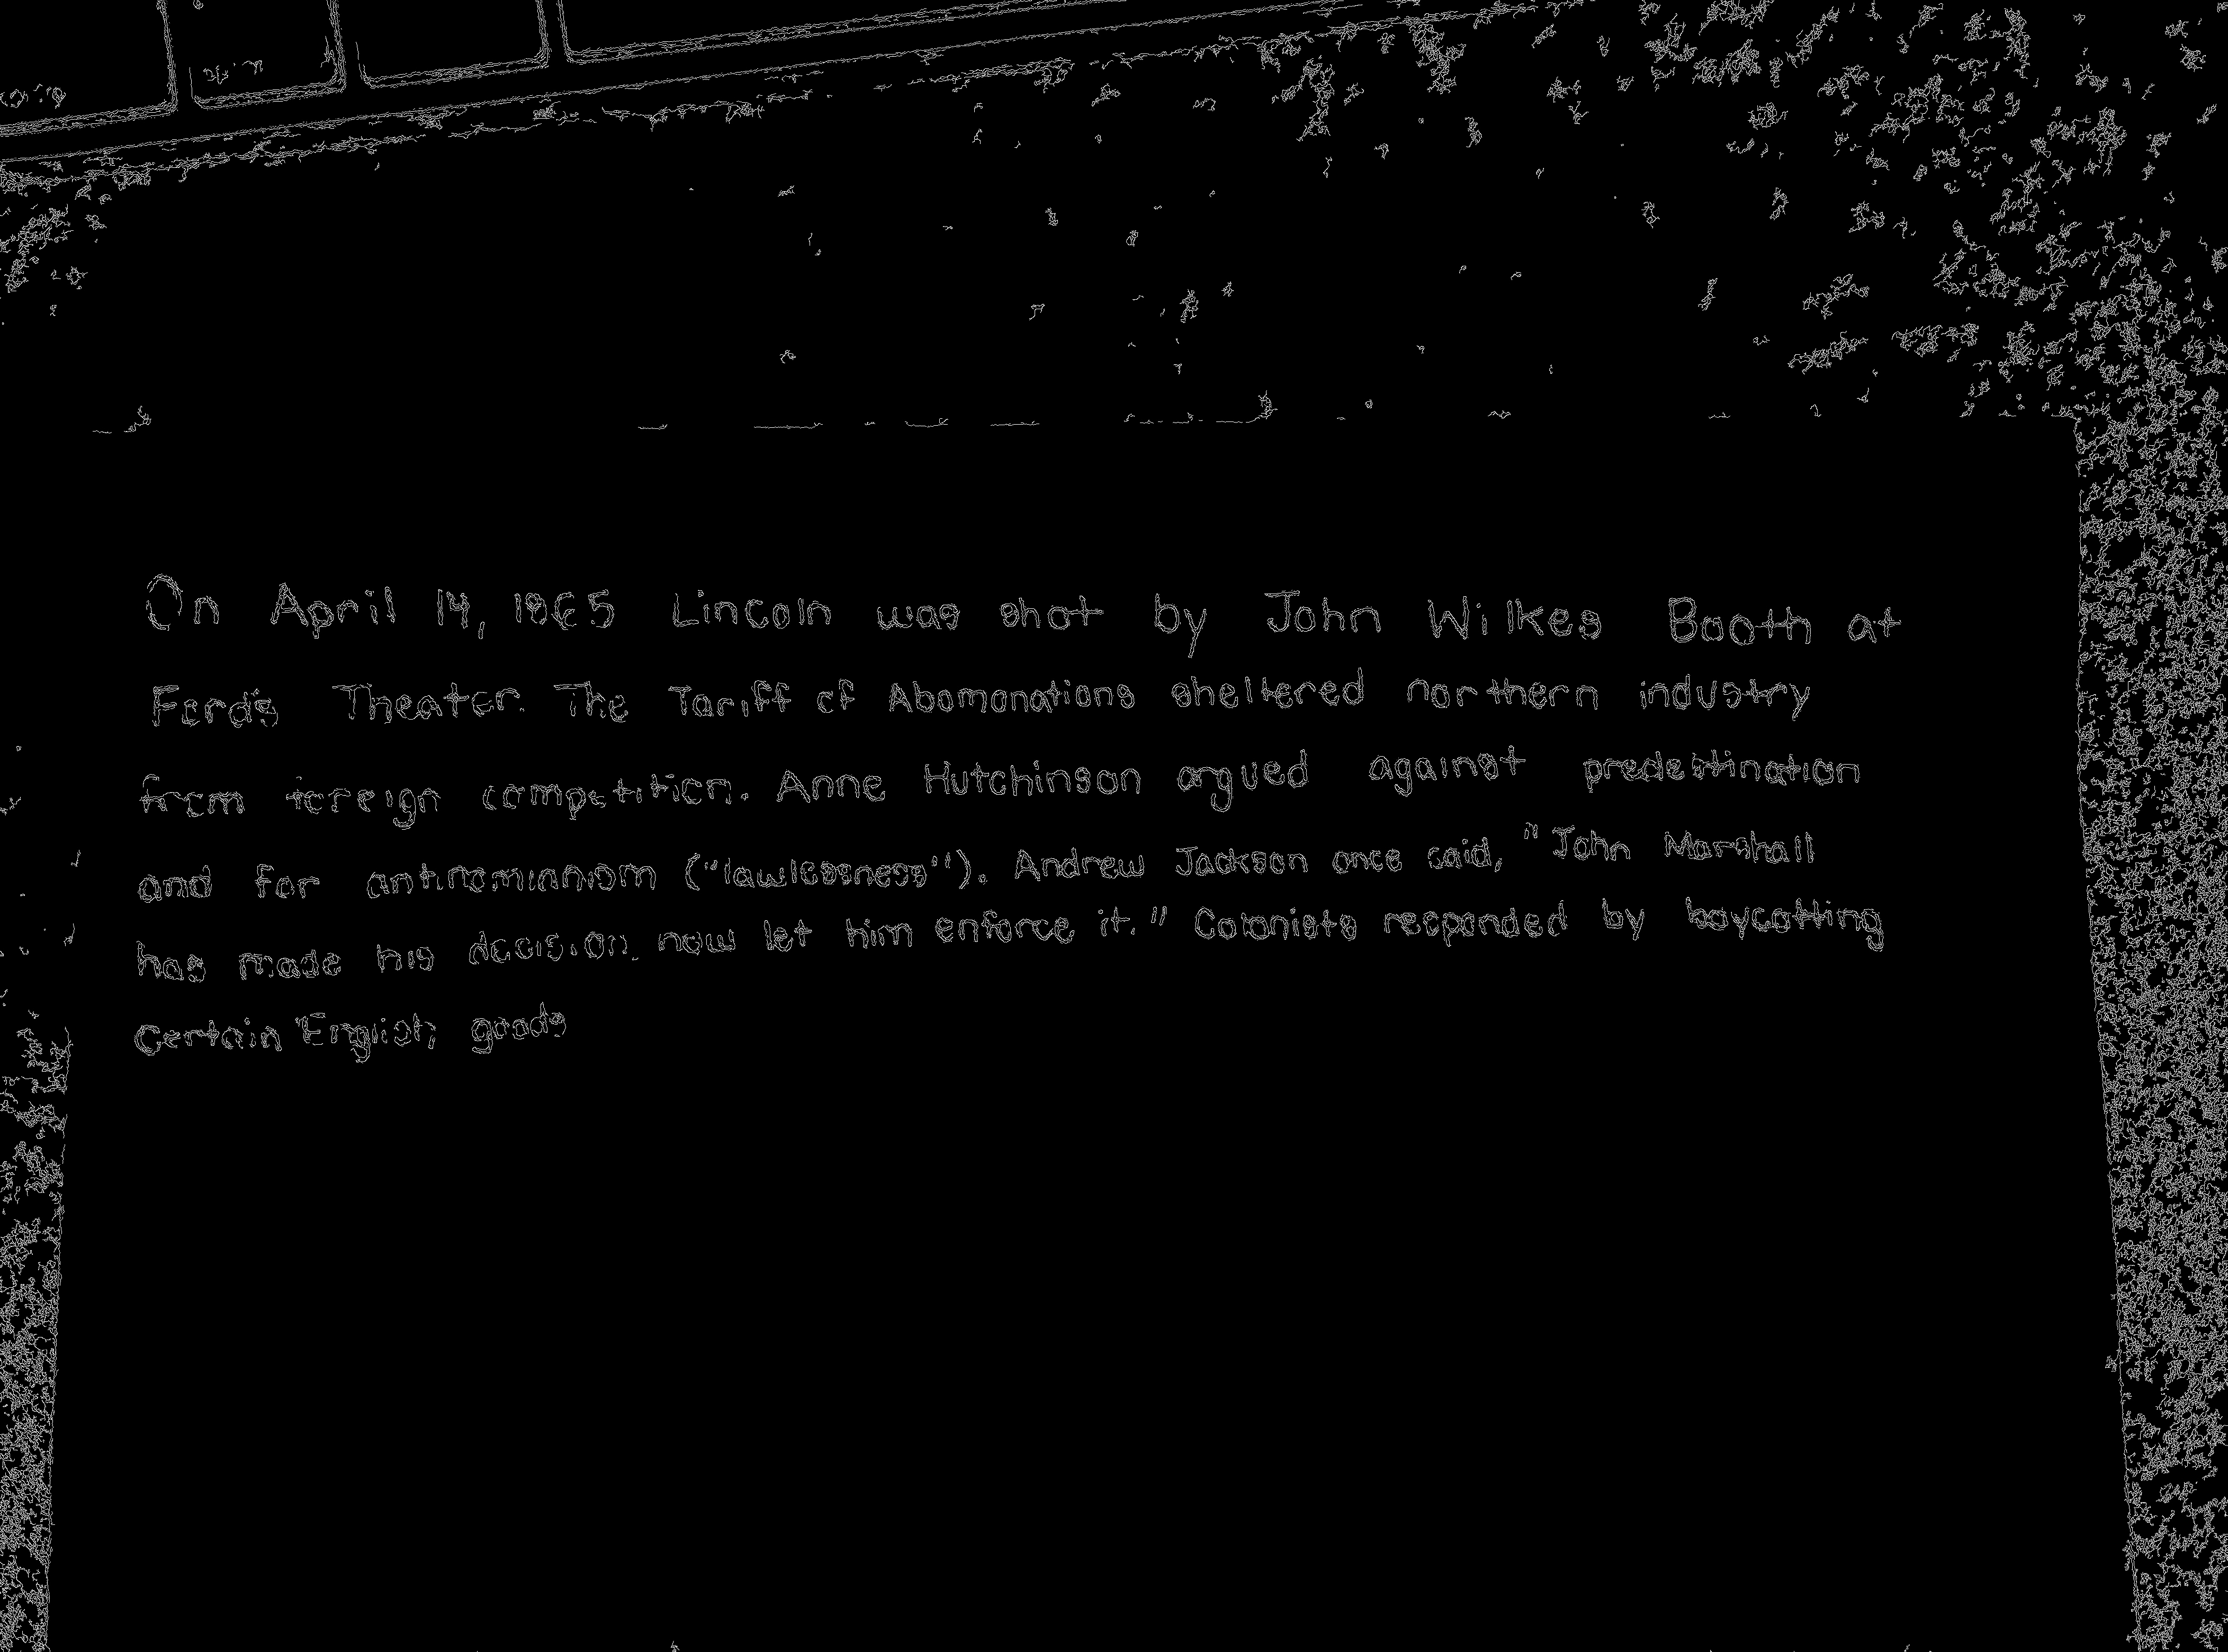 On April 14, 1865 Lincoln was shot by John Wilkes Booth at
Ford's Theater. The Tariff of Abomonations sheltered northern industry
from foreign competition. Anne Hutchinson argued against predestination
and for antinomianism ("lawlessness"). Andrew Jackson once said, "John Marshall
has made his decision, now let him enforce it." Colonists responded by boycotting
Certain English goods